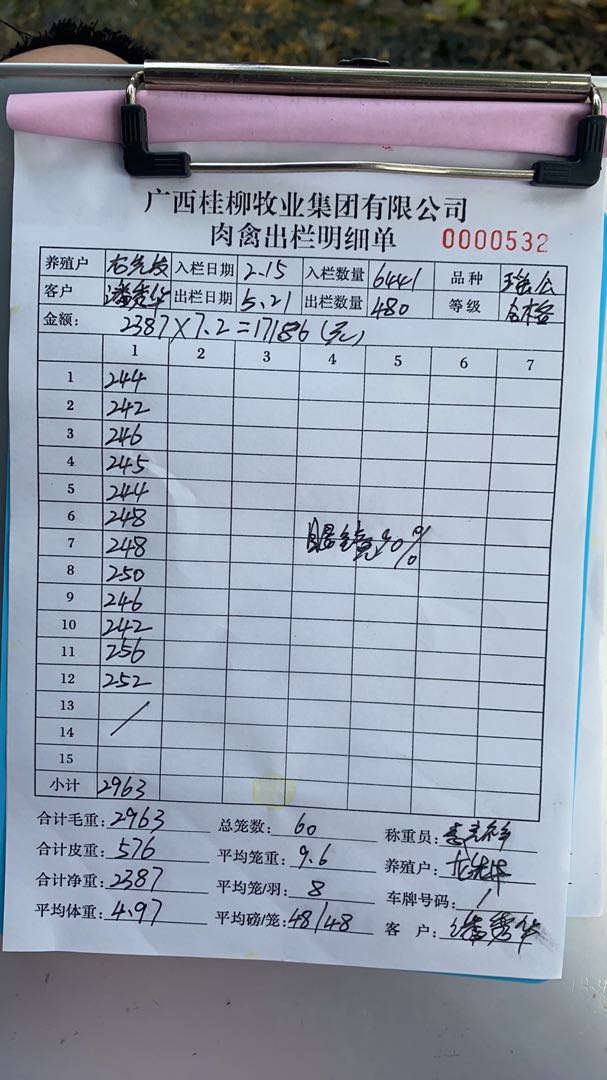 广西桂柳牧业集团有限公司
肉禽出栏明细单 0000532
养殖户 入栏日期 2.15 入栏数量 6441 品种
客户 潘秀华 出栏日期 5.21 出栏数量 480 等级 合格
金额: 2387×7.2=17186(元)
1 2 3 4 5 6 7
1 244
2 242
3 246
4 245
5 244
6 248
7 248 眼镜30%
8 250
9 246
10 242
11 256
12 252
13
14
15
小计 2963
合计毛重: 2963 总笼数: 60 称重员:
合计皮重: 576 平均笼重: 9.6 养殖户:
合计净重: 2387 平均笼/羽: 8 车牌号码: /
平均体重: 4.97 平均磅/笼: 48/48 客 户: 潘秀华